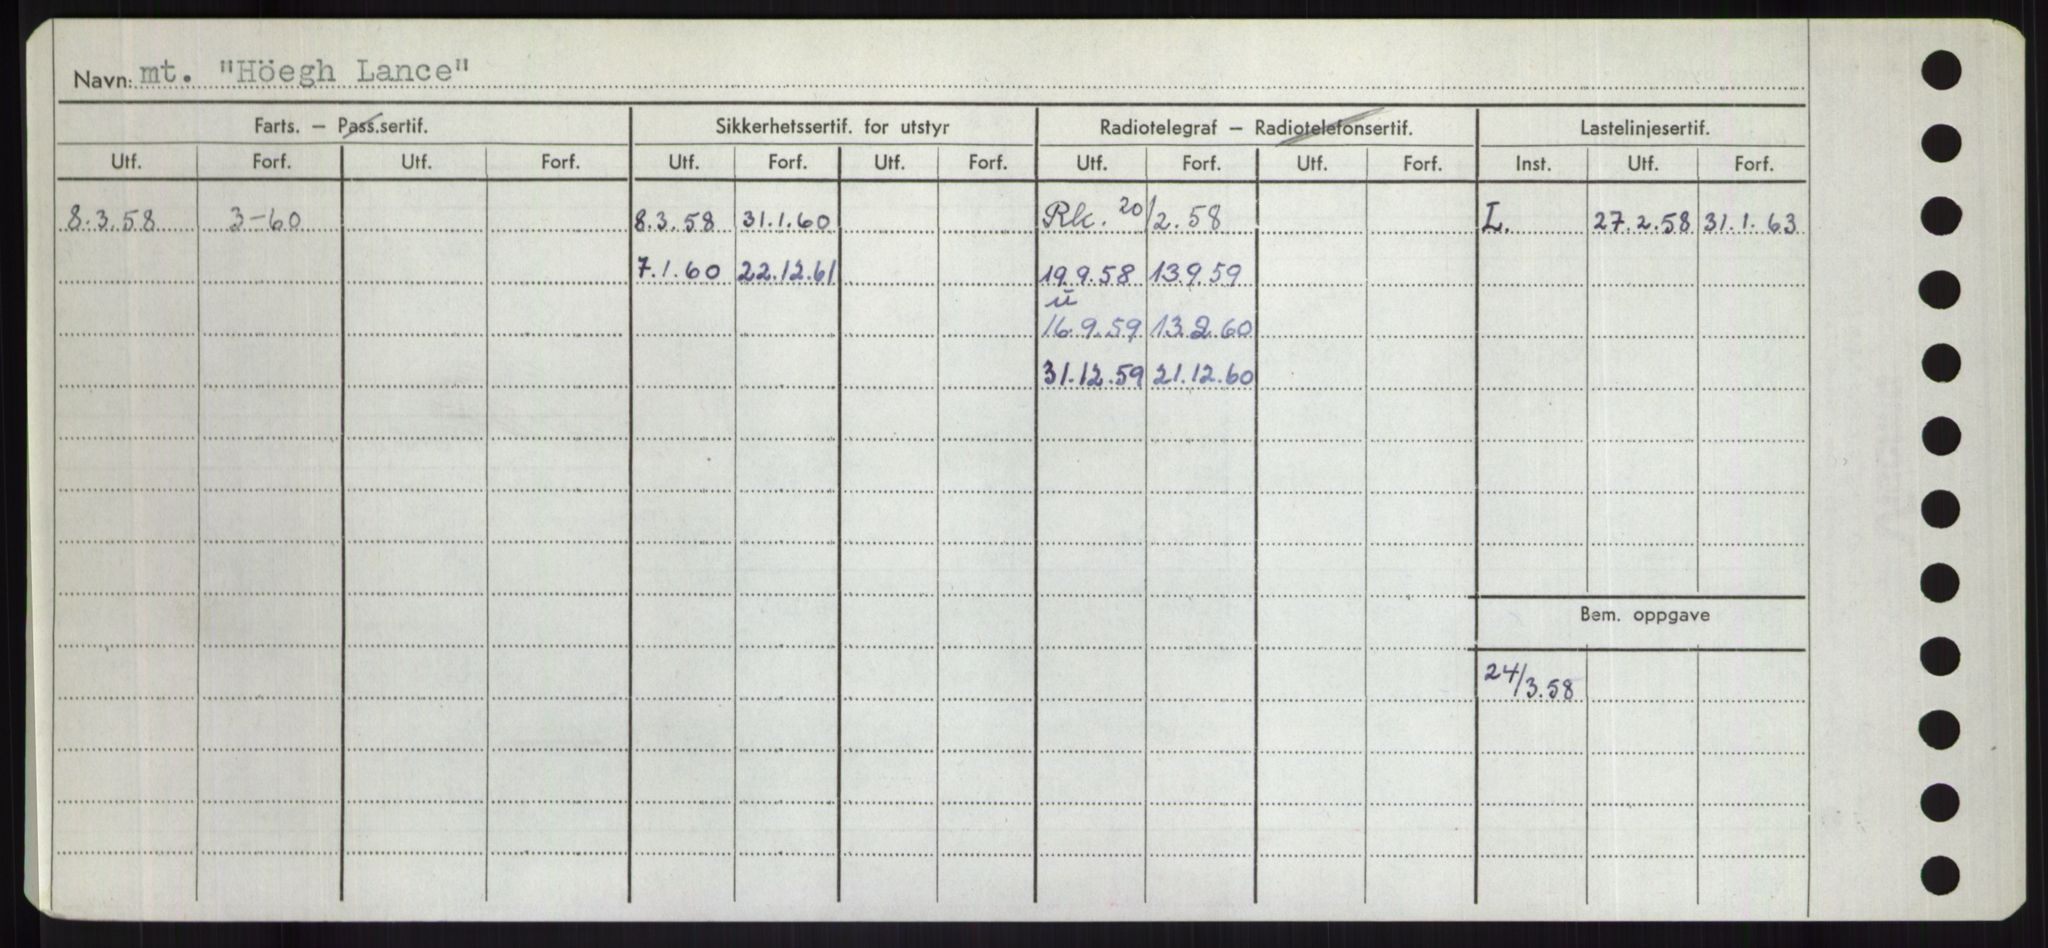 Navn: mt. "Höegh Lance"
Farts. – Pass.sertif. Sikkerhetssertif. for utstyr Radiotelegraf – Radiotelefonsertif. Lastelinjesertif.
Utf. Forf. Utf. Forf. Utf. Forf. Utf. Forf. Utf. Forf. Utf. Forf. Inst. Utf. Forf.
8.3.58 3-60 8.3.58 31.1.60 Rk. 20/2.58 L. 27.2.58 31.1.63
7.1.60 22.12.61 19.9.58 13.9.59
ū
16.9.59 13.2.60
31.12.59 21.12.60
Bem. oppgave
24/3.58